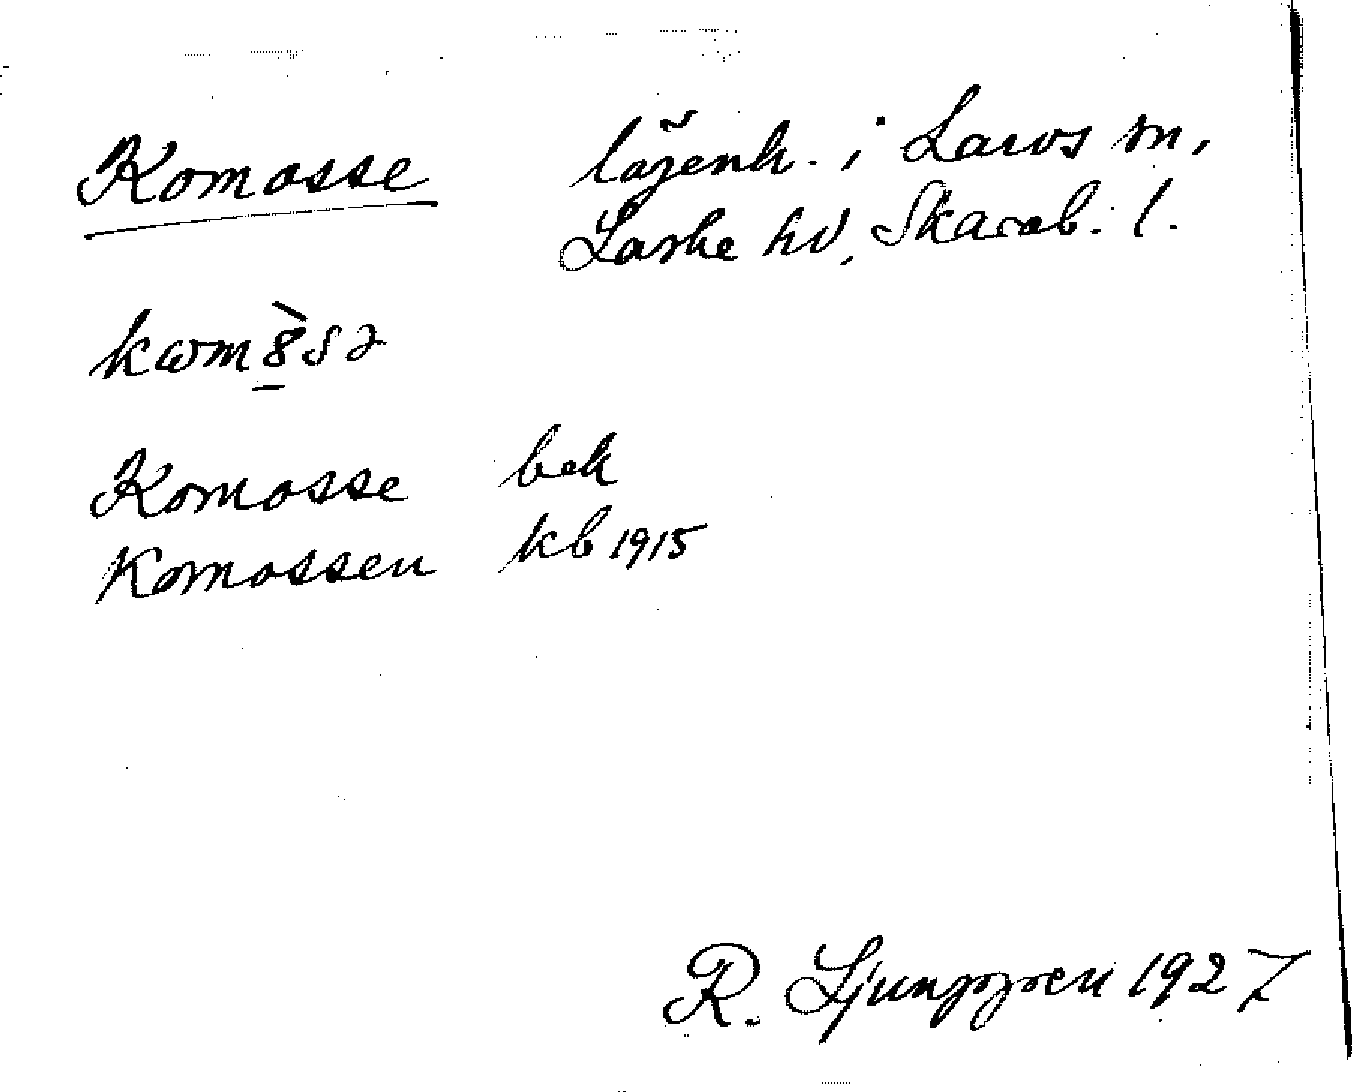 Komosse lägenh. i Larvs sn,
Laske hd, Skarab. l.
kωm8̀sə
Komosse bek
Komossen kb 1915
R. Ljunggren 1927